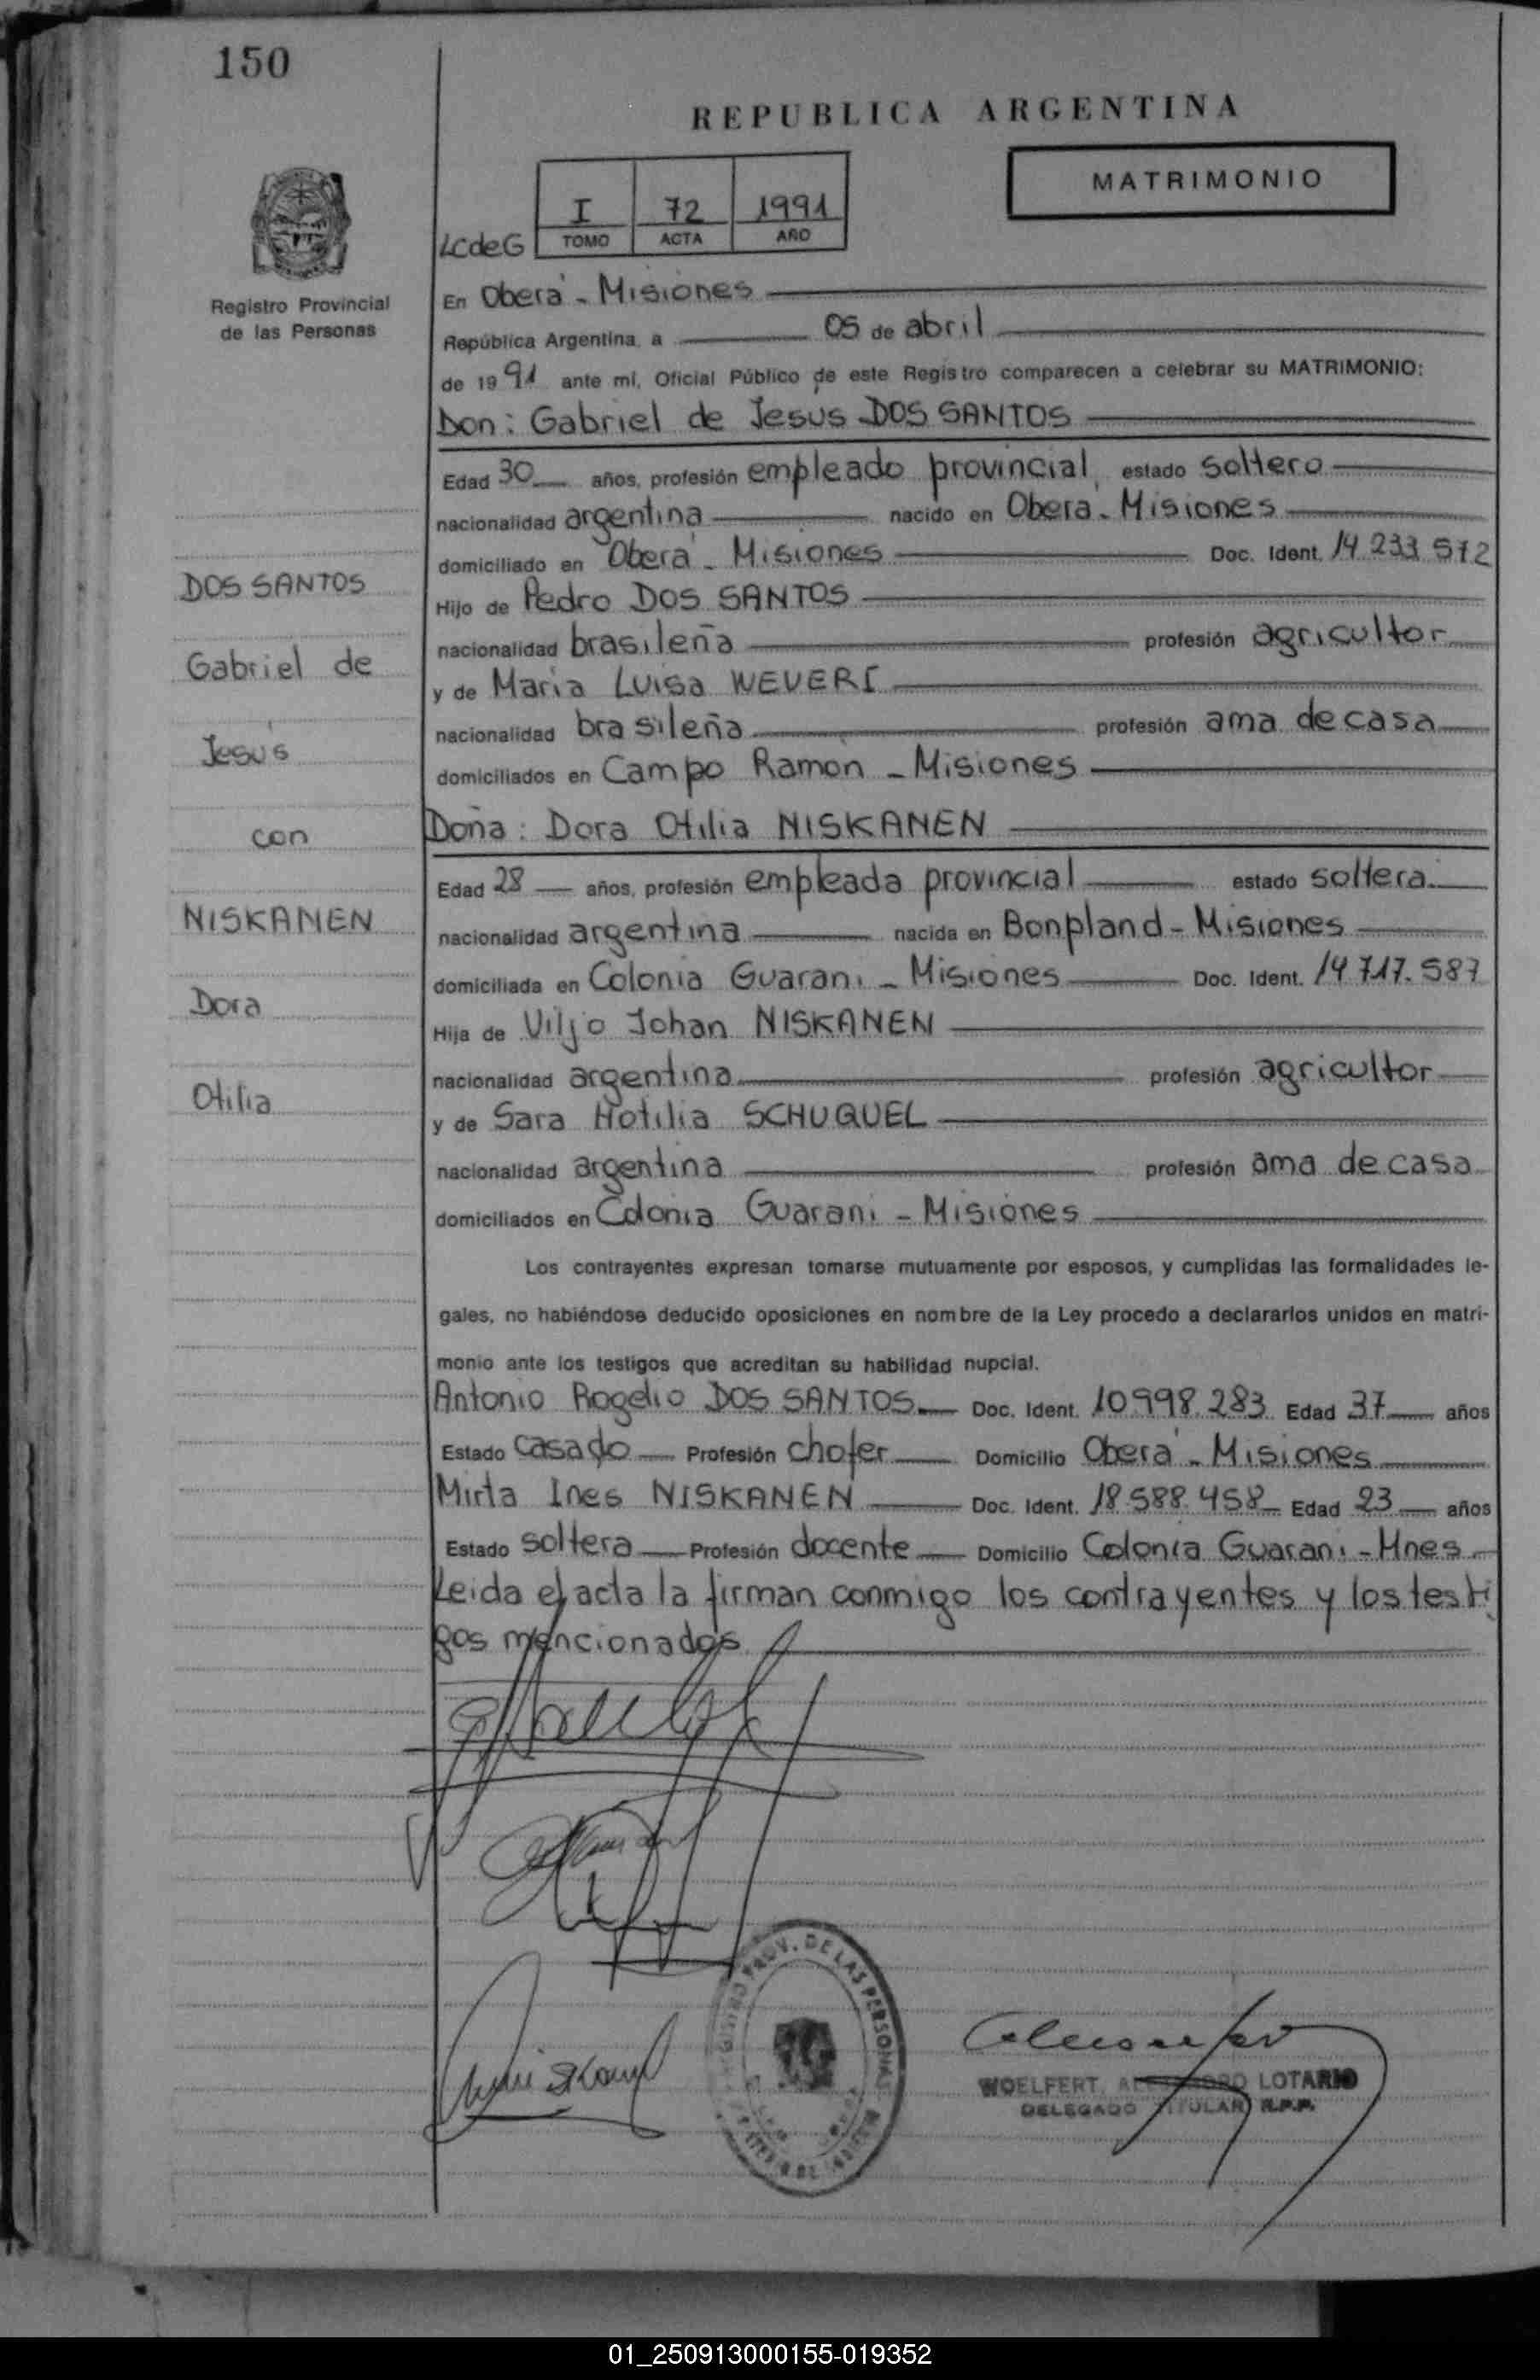 150
REPUBLICA ARGENTINA
MATRIMONIO
I 72 1991
LCdeG TOMO ACTA AÑO
Registro Provincial
de las Personas
En Oberá - Misiones
República Argentina, a 05 de abril
de 1991 ante mí, Oficial Público de este Registro comparecen a celebrar su MATRIMONIO:
Don: Gabriel de Jesus DOS SANTOS
Edad 30 años, profesión empleado provincial, estado soltero
nacionalidad argentina nacido en Obera - Misiones
domiciliado en Oberá - Misiones Doc. Ident. 14 233 572
Hijo de Pedro DOS SANTOS
nacionalidad brasileña profesión agricultor
y de Maria Luisa WEVERS
nacionalidad brasileña profesión ama de casa
domiciliados en Campo Ramón - Misiones
Doña: Dora Otilia NISKANEN
Edad 28 años, profesión empleada provincial estado soltera
nacionalidad argentina nacida en Bonpland - Misiones
domiciliada en Colonia Guarani - Misiones Doc. Ident. 14 717.587
Hija de Viljo Johan NISKANEN
nacionalidad argentina profesión agricultor
y de Sara Hotilia SCHUQUEL
nacionalidad argentina profesión ama de casa
domiciliados en Colonia Guarani - Misiones
Los contrayentes expresan tomarse mutuamente por esposos, y cumplidas las formalidades le-
gales, no habiéndose deducido oposiciones en nombre de la Ley procedo a declararlos unidos en matri-
monio ante los testigos que acreditan su habilidad nupcial.
Antonio Rogelio DOS SANTOS Doc. Ident. 10998.283 Edad 37 años
Estado casado Profesión chofer Domicilio Oberá - Misiones
Mirta Ines NISKANEN Doc. Ident. 18.588.458 Edad 23 años
Estado soltera Profesión docente Domicilio Colonia Guarani - Mnes
Leida el acta la firman conmigo los contrayentes y los testi
gos mencionados
DOS SANTOS
Gabriel de
Jesús
con
NISKANEN
Dora
Otilia
PROV. DE LAS PERSONAS
WOELFERT, LOTARIO
DELEGADO TITULAR R.P.P.
01_250913000155-019352